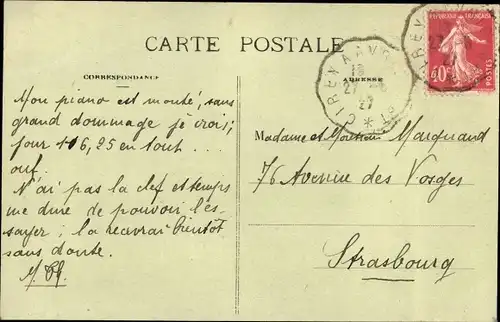 CARTE POSTALE
CORRESPONDANCE
Mon piano est monté, sans
grand dommage je crois;
pour 116,25 en tout...
ouf.
N'ai pas la clef et temps
me dure de pouvoir l'es-
sayer; la recevrai bientôt
sans doute.
ADRESSE
Madame et Monsieur Marquand
76 Avenue des Vosges
Strasbourg
60c
POSTES